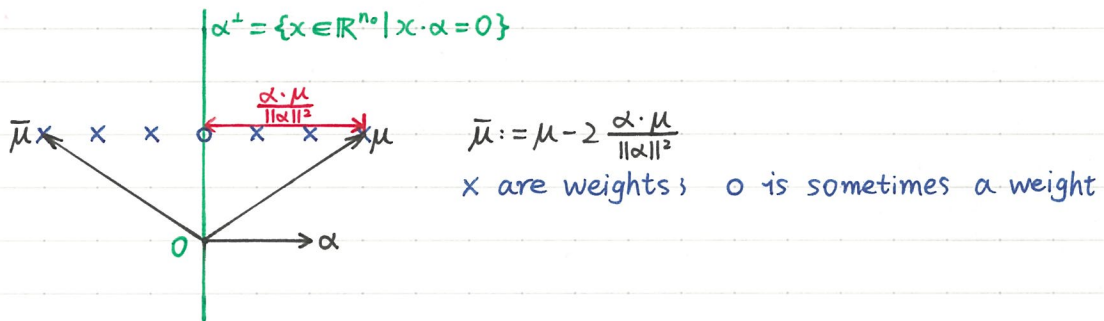 α⊥ = {x ∈ ℝⁿ⁰ | x · α = 0}
α · μ / ||α||²
μ̄ × × × o × × × μ
μ̄ := μ - 2 α · μ / ||α||²
× are weights; o is sometimes a weight
0
α